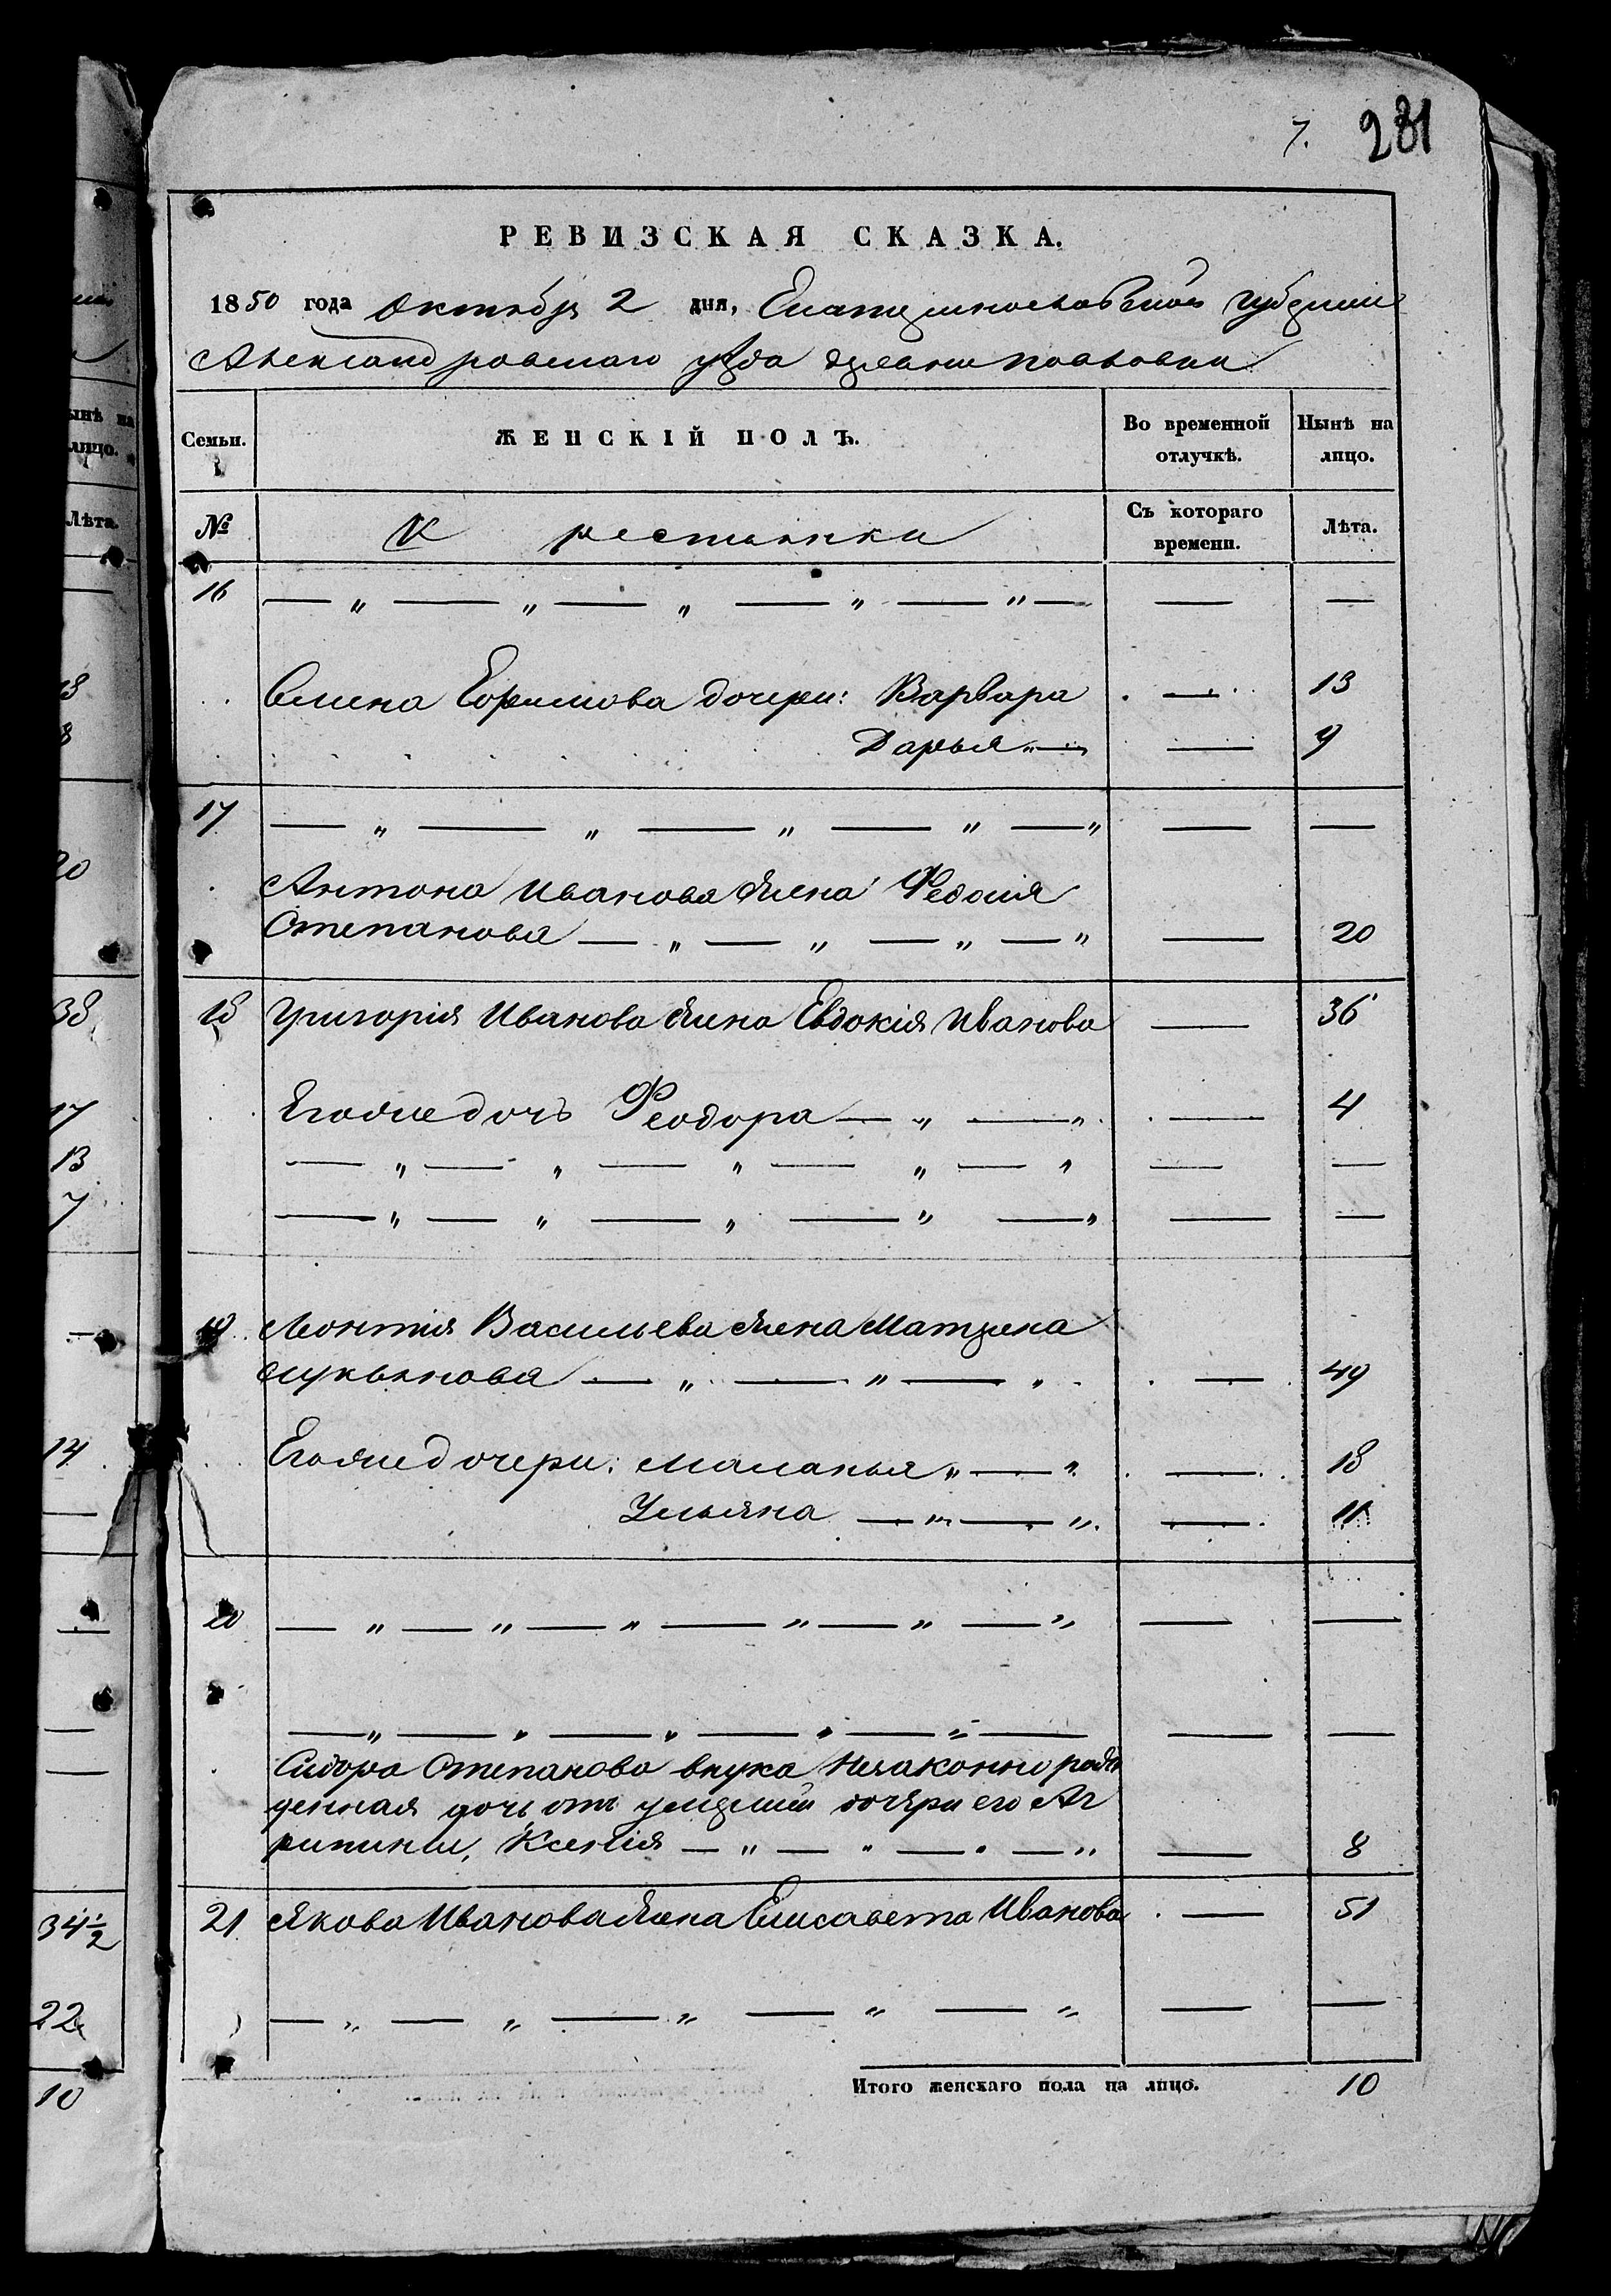 7. 231
РЕВИЗСКАЯ СКАЗКА.
1850 года Октября 2 дня, Екатеринославской губернии
Александровскаго уѣзда деревни Павловки
Семьи. ЖЕНСКІЙ ПОЛЪ. Во временной отлучкѣ. Нынѣ на лицо.
№ Крестьянки Съ котораго времени. Лѣта.
16 — " — " — " — " — " — — —
Ефимова дочери: Варвара — 13
Дарья " — — 9
17 — " — " — " — " — " — —
Антона Иванова жена Федосія
Степанова — " — " — " — " — 20
18 Григорія Иванова жена Евдокія Иванова — 36
Его же дочь Феодора — " — " — 4
— " — " — " — " — " — —
— " — " — " — " — " — —
19 Леонтія Васильева жена Матрена
Лукьянова — " — " — " — 49
Его же дочери: Маланья " — " — 18
Ульяна — " — " — 11
20 — " — " — " — " — " — " — —
— " — " — " — " — " — — —
Сидора Степанова внука незаконно рож
денная дочь отъ умершей дочери его Аг
рипины, Ксенія — " — " — " — " — 8
21 Якова Иванова жена Елисавета Иванова — 51
— " — " — " — " — " — —
Итого женскаго пола на лицо. 10
ынѣ на
лицо.
Лѣта.
13
8
20
38
17
13
7
—
14
—
—
—
—
34½
22
10